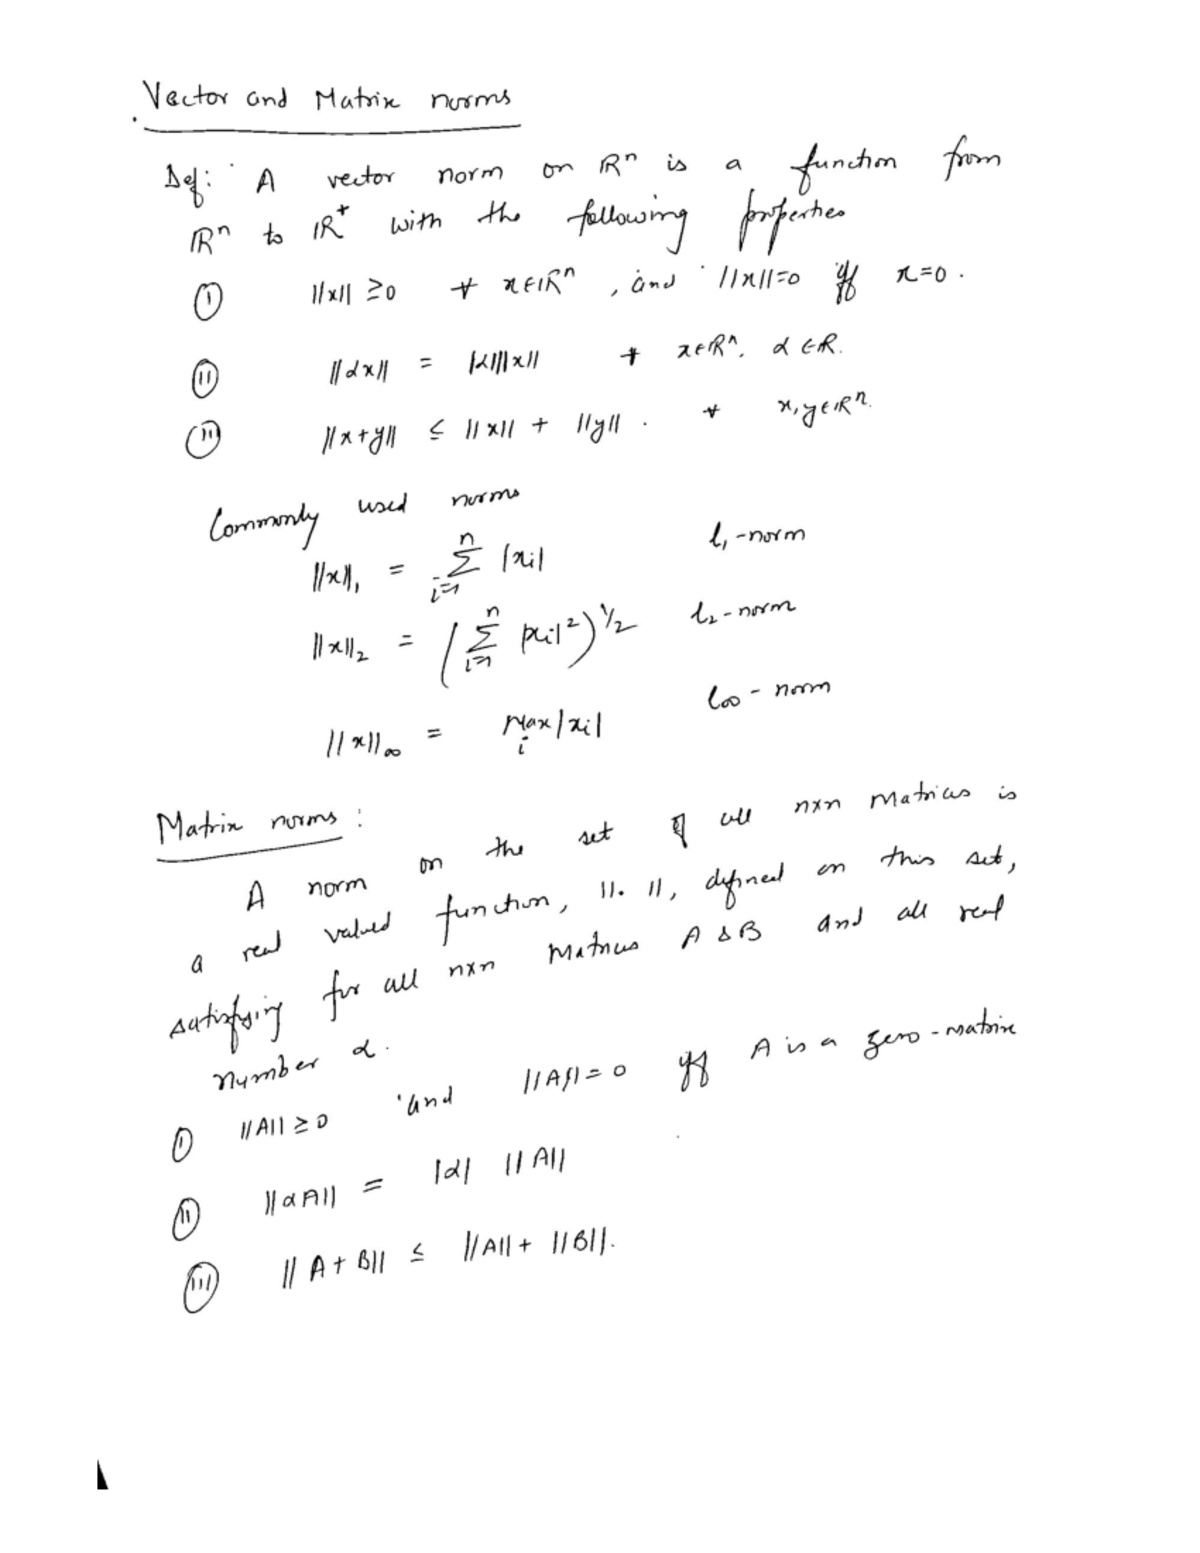 Vector and Matrix norms
Def: A vector norm on ℝⁿ is a function from
ℝⁿ to ℝ⁺ with the following properties
(i) ||x|| ≥ 0 ∀ x∈ℝⁿ, and ||x||=0 iff x=0.
(ii) ||αx|| = |α|||x|| ∀ x∈ℝⁿ, α∈ℝ.
(iii) ||x+y|| ≤ ||x|| + ||y||. ∀ x,y∈ℝⁿ.
Commonly used norms
||x||₁ = ∑ᵢ₌₁ⁿ |xᵢ| l₁-norm
||x||₂ = (∑ᵢ₌₁ⁿ |xᵢ|²)^{1/2} l₂-norm
||x||∞ = Max_i |xᵢ| l∞-norm
Matrix norms:
A norm on the set of all n×n Matrices is
a real valued function, ||·||, defined on this set,
satisfying for all n×n Matrices A & B and all real
number α.
(i) ||A|| ≥ 0 and ||A||=0 iff A is a zero-matrix
(ii) ||αA|| = |α| ||A||
(iii) ||A+B|| ≤ ||A||+||B||.